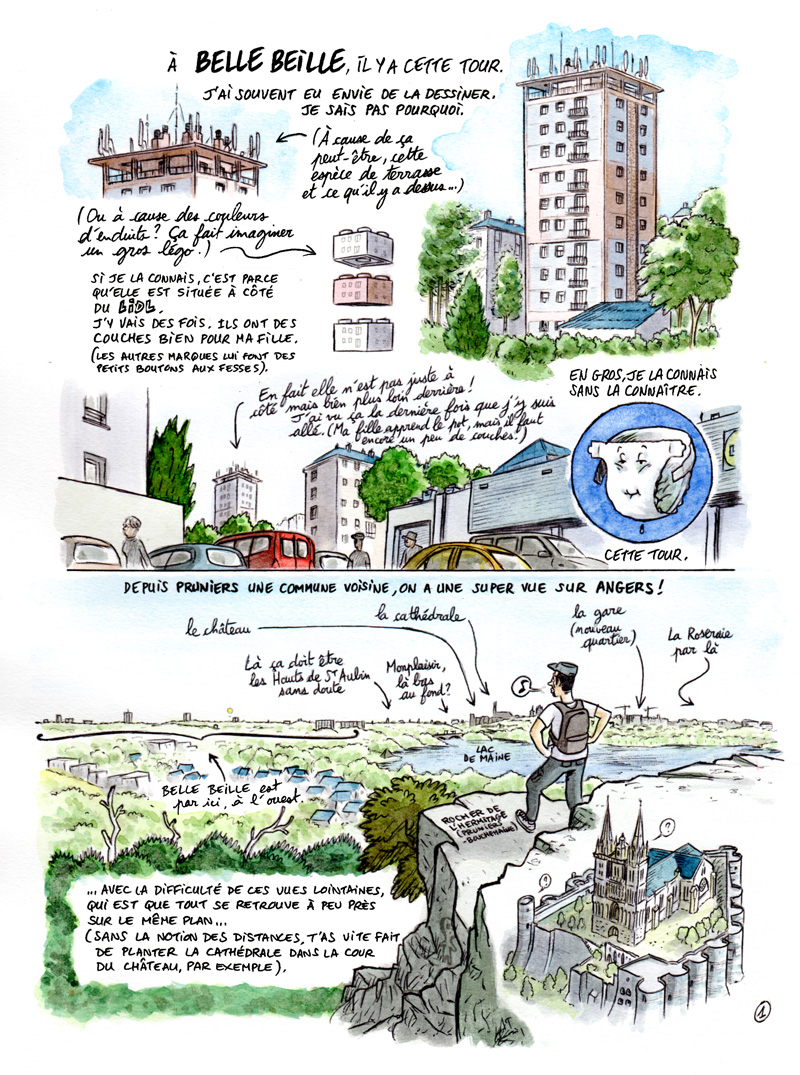 À BELLE BEILLE, IL Y A CETTE TOUR.
J'AI SOUVENT EU ENVIE DE LA DESSINER.
JE SAIS PAS POURQUOI.
(À cause de ça
peut-être, cette
espèce de terrasse
et ce qu'il y a dessus...)
(Ou à cause des couleurs
d'enduits? Ça fait imaginer
un gros légo!)
SI JE LA CONNAIS, C'EST PARCE
QU'ELLE EST SITUÉE À CÔTÉ
DU LIDL.
J'Y VAIS DES FOIS. ILS ONT DES
COUCHES BIEN POUR MA FILLE.
(LES AUTRES MARQUES LUI FONT DES
PETITS BOUTONS AUX FESSES).
En fait elle n'est pas juste à
côté mais bien plus loin derrière!
J'ai vu ça la dernière fois que j'y suis
allé. (Ma fille apprend le pot, mais il faut
encore un peu de couches!)
EN GROS, JE LA CONNAIS
SANS LA CONNAÎTRE.
CETTE TOUR.
DEPUIS PRUNIERS UNE COMMUNE VOISINE, ON A UNE SUPER VUE SUR ANGERS!
le château
la cathédrale
la gare
(nouveau
quartier)
La Roseraie
par là
Là ça doit être
les Hauts de St Aubin
sans doute
Monplaisir,
là bas
au fond?
LAC
DE MAINE
BELLE BEILLE est
par ici, à l'ouest.
ROCHER DE
L'HERMITAGE
(PRUNIERS
-BOUCHEMAINE)
?
?
... AVEC LA DIFFICULTÉ DE CES VUES LOINTAINES,
QUI EST QUE TOUT SE RETROUVE À PEU PRÈS
SUR LE MÊME PLAN...
(SANS LA NOTION DES DISTANCES, T'AS VITE FAIT
DE PLANTER LA CATHÉDRALE DANS LA COUR
DU CHÂTEAU, PAR EXEMPLE).
1